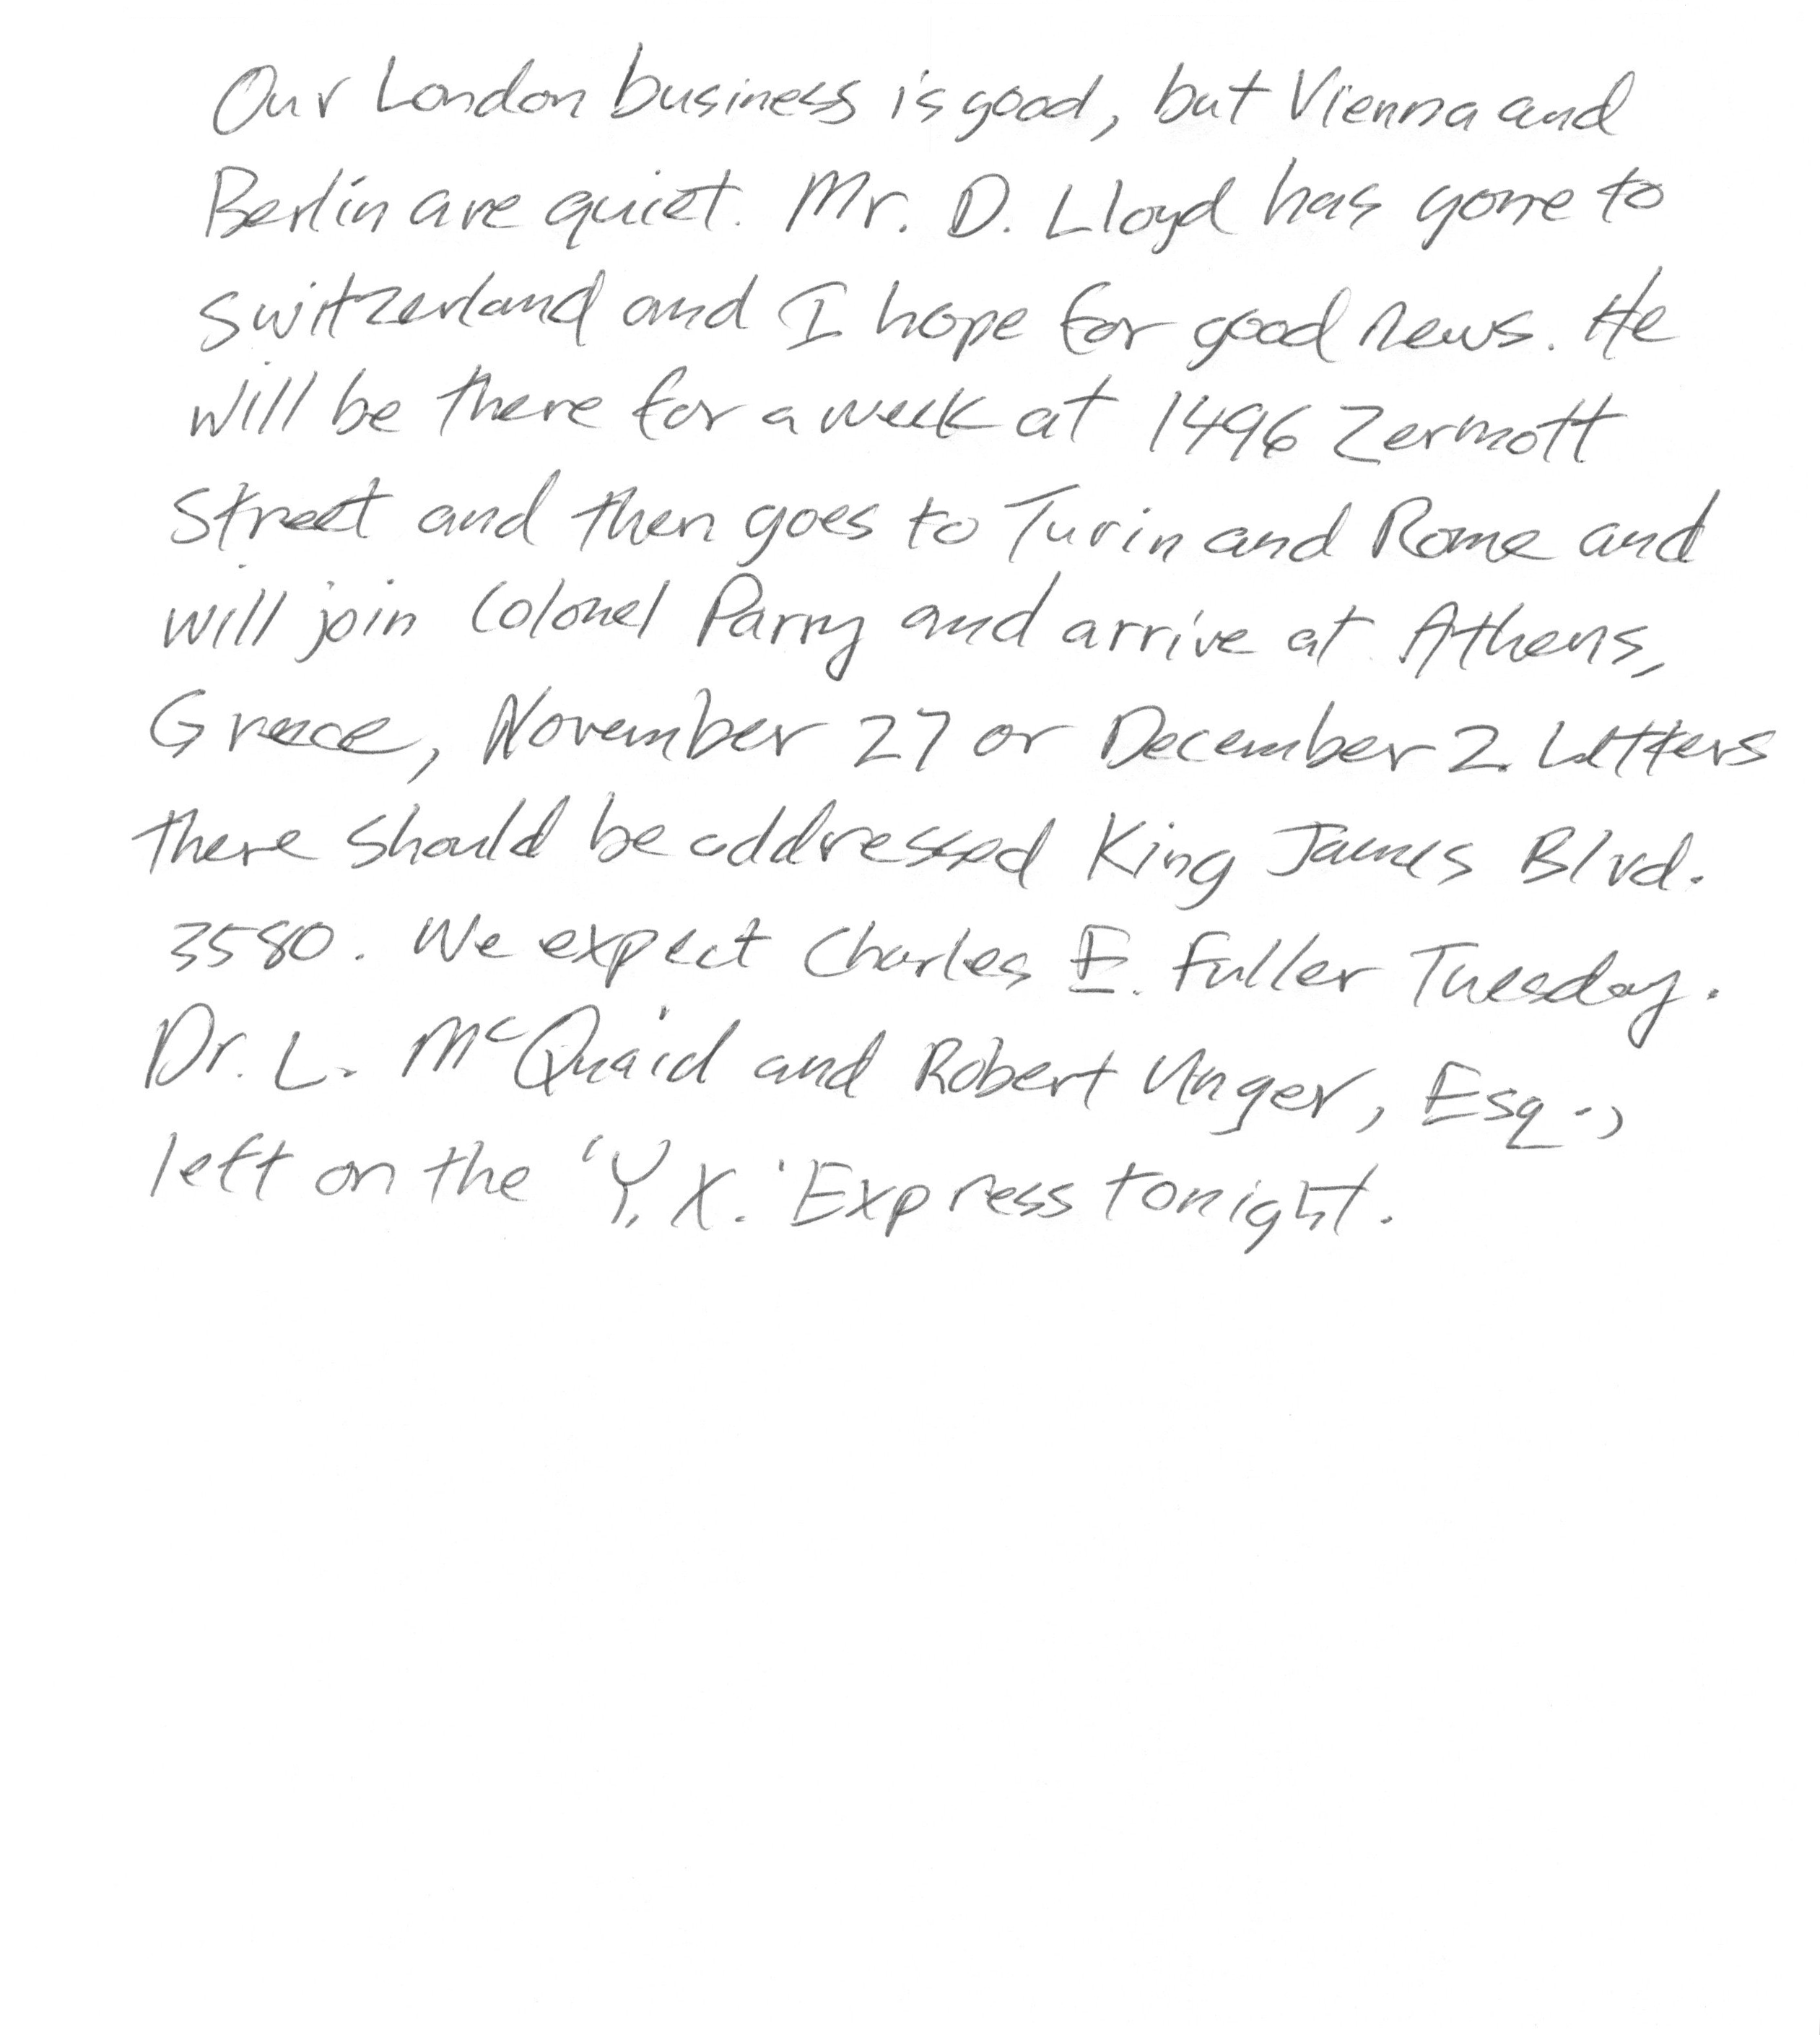 Our London business is good, but Vienna and
Berlin are quiet. Mr. D. Lloyd has gone to
Switzerland and I hope for good news. He
will be there for a week at 1496 Zermott
Street and then goes to Turin and Rome and
will join Colonel Parry and arrive at Athens,
Greece, November 27 or December 2. Letters
there should be addressed King James Blvd.
3580. We expect Charles E. Fuller Tuesday.
Dr. L. McQuaid and Robert Unger, Esq.,
left on the 'Y. X.' Express tonight.